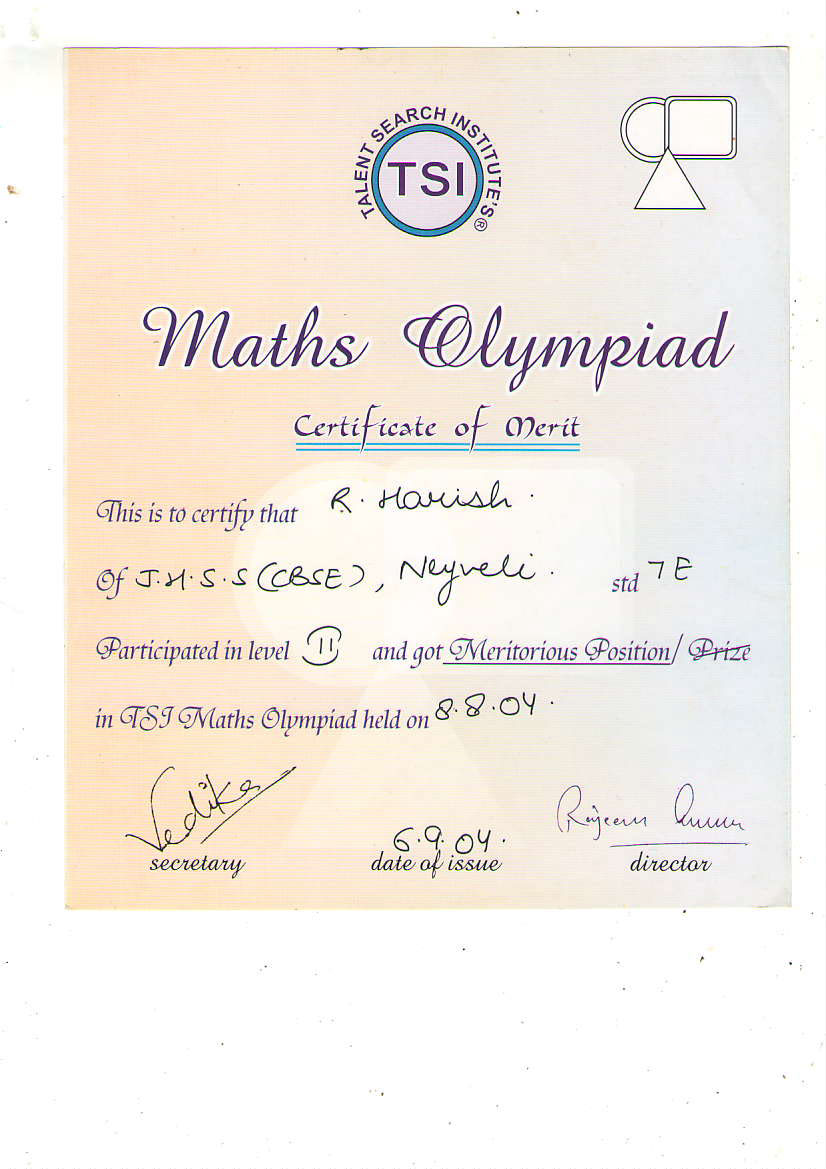 TALENT SEARCH INSTITUTE'S ®
TSI
Maths Olympiad
Certificate of Merit
This is to certify that R. Harish.
Of J.H.S.S (CBSE), Neyveli. std 7 E
Participated in level II and got Meritorious Position/ Prize
in TSI Maths Olympiad held on 8.8.04.
Vedika Rajeev Kumar
6.9.04.
secretary date of issue director